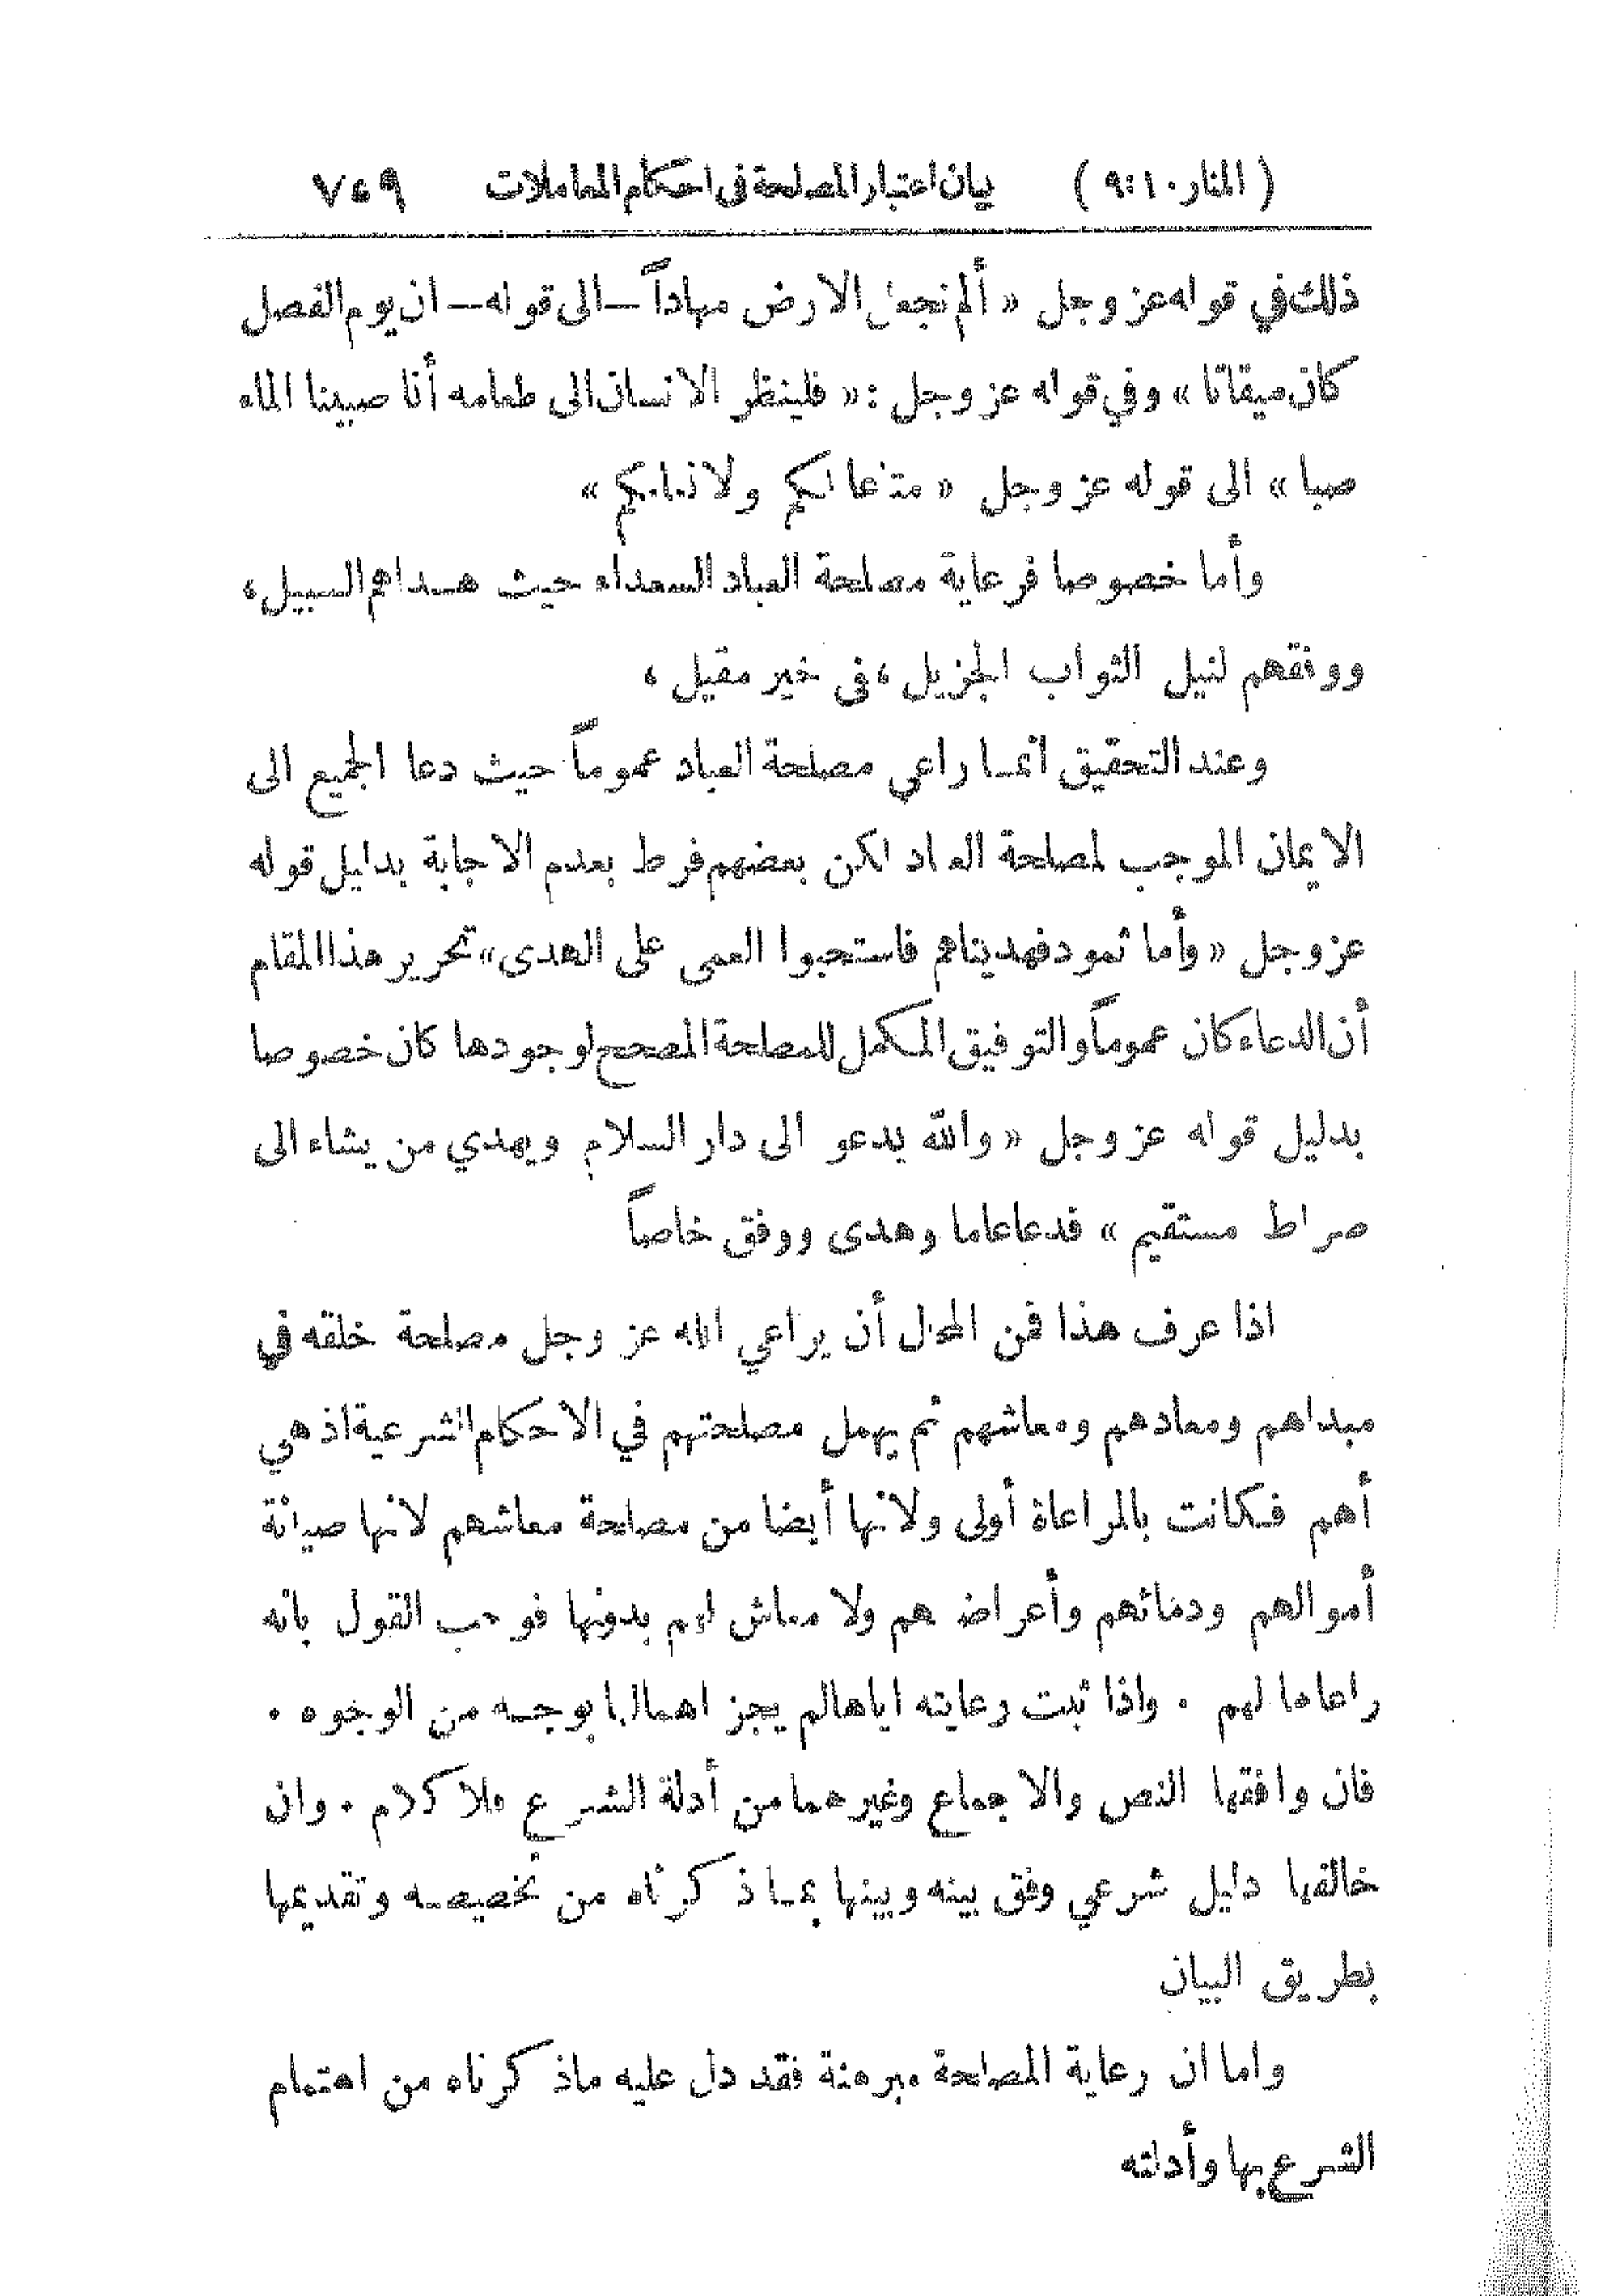 ( المنار ٩:١٠ ) بيان اعتبار المصلحة فى احكام المعاملات ٧٥٩
ذلك في قوله عز وجل « ألم نجعل الارض مهاداً – الى قوله – ان يوم الفصل
كان ميقاتا » وفي قوله عز وجل : « فلينظر الانسان الى طعامه أنا صببنا الماء
صبا » الى قوله عز وجل « متاعا لكم ولانعامكم »
وأما خصوصا فرعاية مصلحة العباد السعداء حيث هداهم السبيل ،
ووفقهم لنيل الثواب الجزيل ، فى خير مقيل ،
وعند التحقيق انما راعي مصلحة العباد عموماً حيث دعا الجميع الى
الايمان الموجب لمصلحة العباد لكن بعضهم فرط بعدم الاجابة بدليل قوله
عز وجل « وأما ثمود فهديناهم فاستحبوا العمى على الهدى » تحرير هذا المقام
أن الدعاء كان عموماً والتوفيق المكمل للمصلحة المصحح لوجودها كان خصوصا
بدليل قوله عز وجل « والله يدعو الى دار السلام ويهدي من يشاء الى
صراط مستقيم » فدعا عاما وهدى ووفق خاصاً
اذا عرف هذا فمن المحال أن يراعي الله عز وجل مصلحة خلقه في
مبداهم ومعادهم ومعاشهم ثم يهمل مصلحتهم في الاحكام الشرعية اذ هي
أهم فكانت بالمراعاة أولى ولانها أيضا من مصلحة معاشهم لانها صيانة
أموالهم ودمائهم وأعراضهم ولا معاش لهم بدونها فوجب القول بانه
راعاها لهم . واذا ثبت رعايته اياها لم يجز اهمالها بوجه من الوجوه .
فان وافقها النص والاجماع وغيرهما من أدلة الشرع فلا كلام . وان
خالفها دليل شرعي وفق بينه وبينها بما ذكرناه من تخصيصه وتقديمها
بطريق البيان
واما ان رعاية المصلحة مبرهنة فقد دل عليه ماذكرناه من اهتمام
الشرع بها وأدلته